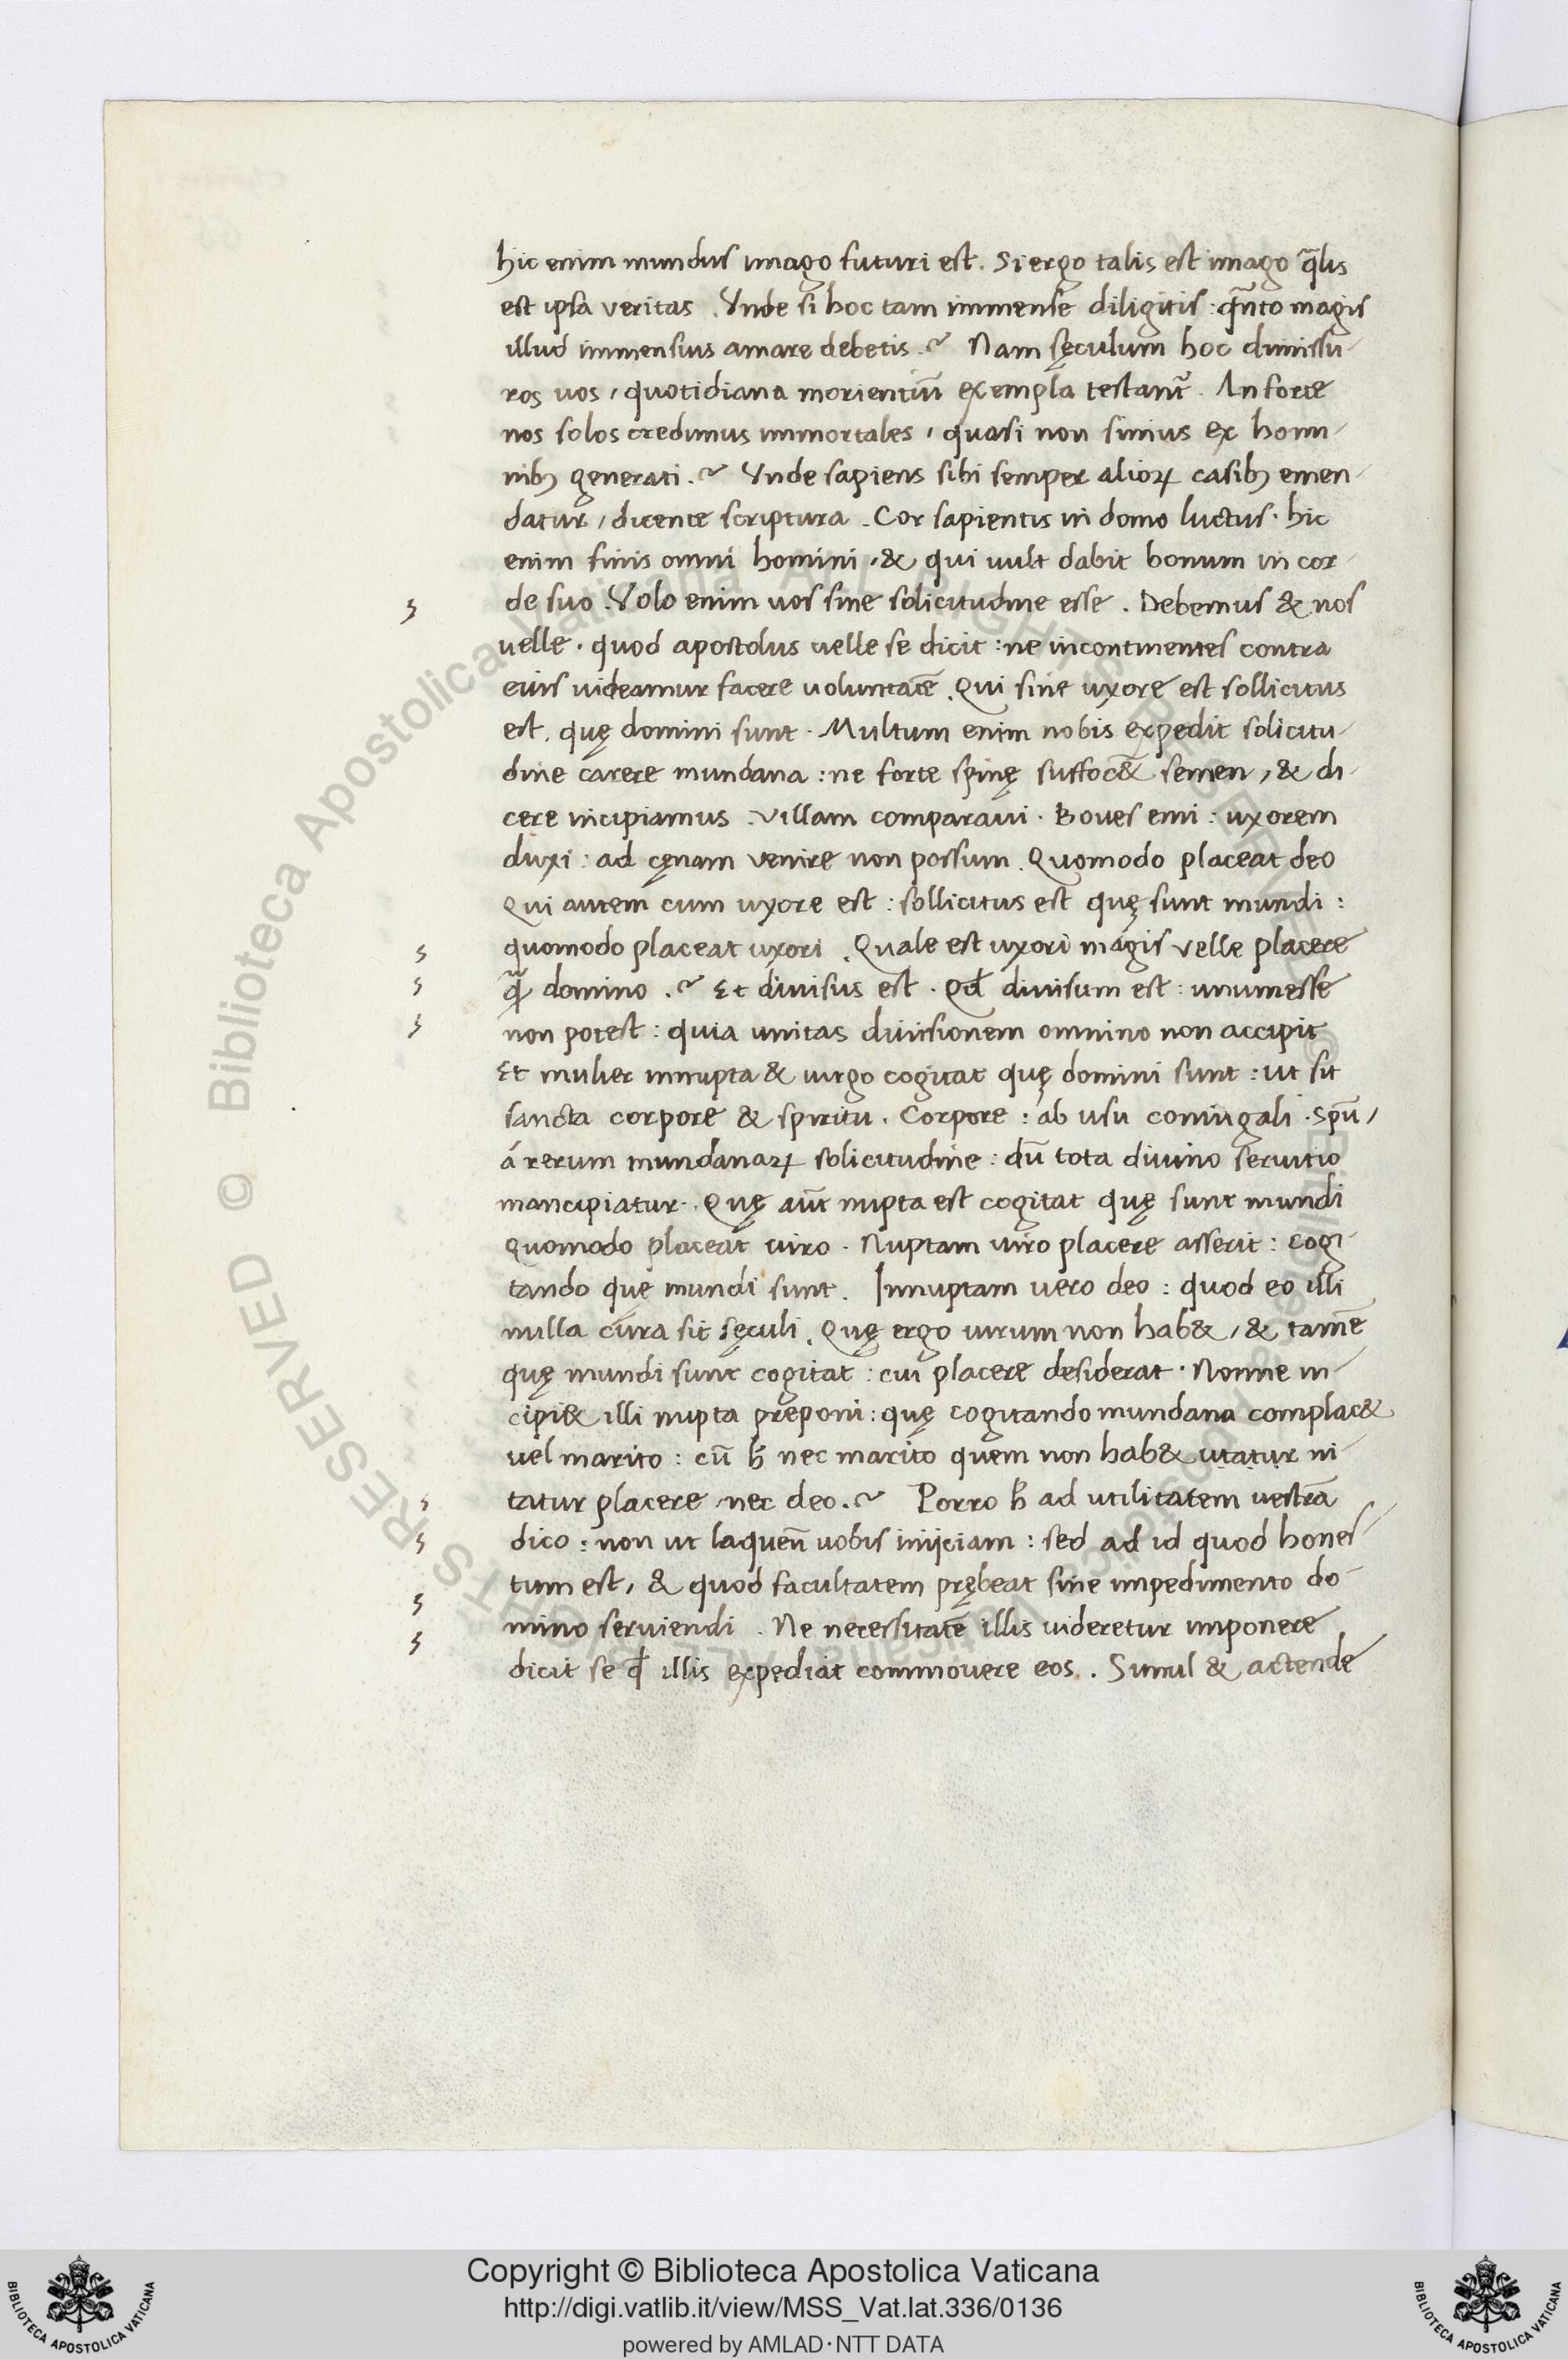 hic enim mundus imago futuri est. Si ergo talis est imago q̃lis
est ipsa veritas. Vnde si hoc tam immense diligitis: q̃nto magis
illud immensius amare debetis.~ Nam sęculum hoc dimissu-
ros uos, quotidiana morientiũ exempla testant᷑. An forte
nos solos credimus immortales, quasi non simus ex homi-
nibꝫ generati.~ Vnde sapiens sibi semper alioꝝ casibꝫ emen-
datur, dicente scriptura. Cor sapientis in domo luctus. hic
enim finis omni homini, & qui uult dabit bonum in cor-
de suo. Volo enim uos sine solicitudine esse. Debemus & nos
uelle. quod apostolus uelle se dicit: ne incontinentes contra
eius uideamur facere voluntatẽ. Qui sine uxore est sollicitus
est, quę domini sunt. Multum enim nobis expedit solicitu-
dine carere mundana: ne forte spinę suffoc&̃ semen, & di-
cere incipiamus. villam comparaui. Boues emi: uxorem
duxi: ad cęnam venire non possum. Quomodo placeat deo
Qui autem cum uxore est: sollicitus est quę sunt mundi:
quomodo placeat uxori. Quale est uxori magis velle placere
q̃ domino.~ Et diuisus est. Qđ diuisum est: unum esse
non potest: quia unitas diuisionem omnino non accipit
Et mulier innupta & uirgo cogitat quę domini sunt: ut sit
sancta corpore & spiritu. Corpore: ab usu coniugali. Spũ,
á rerum mundanaꝝ solicitudine: dũ tota diuino seruitio
mancipiatur. Quę aũt nupta est cogitat quę sunt mundi
quomodo placeat viro. Nuptam uiro placere asserit: cogi-
tando quę mundi sunt. Innuptam vero deo: quod eo illi
nulla cura sit sęculi. Quę ergo uirum non hab&, & tamẽ
quę mundi sunt cogitat: cui placere desiderat. Nonne in-
cipi& illi nupta pręponi: quę cogitando mundana complac&
vel marito: cũ ħ nec marito quem non hab& utatur ni-
tatur placere, nec deo.~ Porro ħ ad utilitatem vestrã
dico: non ut laqueũ uobis inijciam: sed ad id quod hones-
tum est, & quod facultatem prębeat sine impedimento do-
mino seruiendi. Ne necessitatẽ illis uideretur imponere
dicit se qđ illis expediat commouere eos. Simul & actende
Copyright © Biblioteca Apostolica Vaticana
http://digi.vatlib.it/view/MSS_Vat.lat.336/0136
powered by AMLAD·NTT DATA
BIBLIOTECA APOSTOLICA VATICANA
BIBLIOTECA APOSTOLICA VATICANA